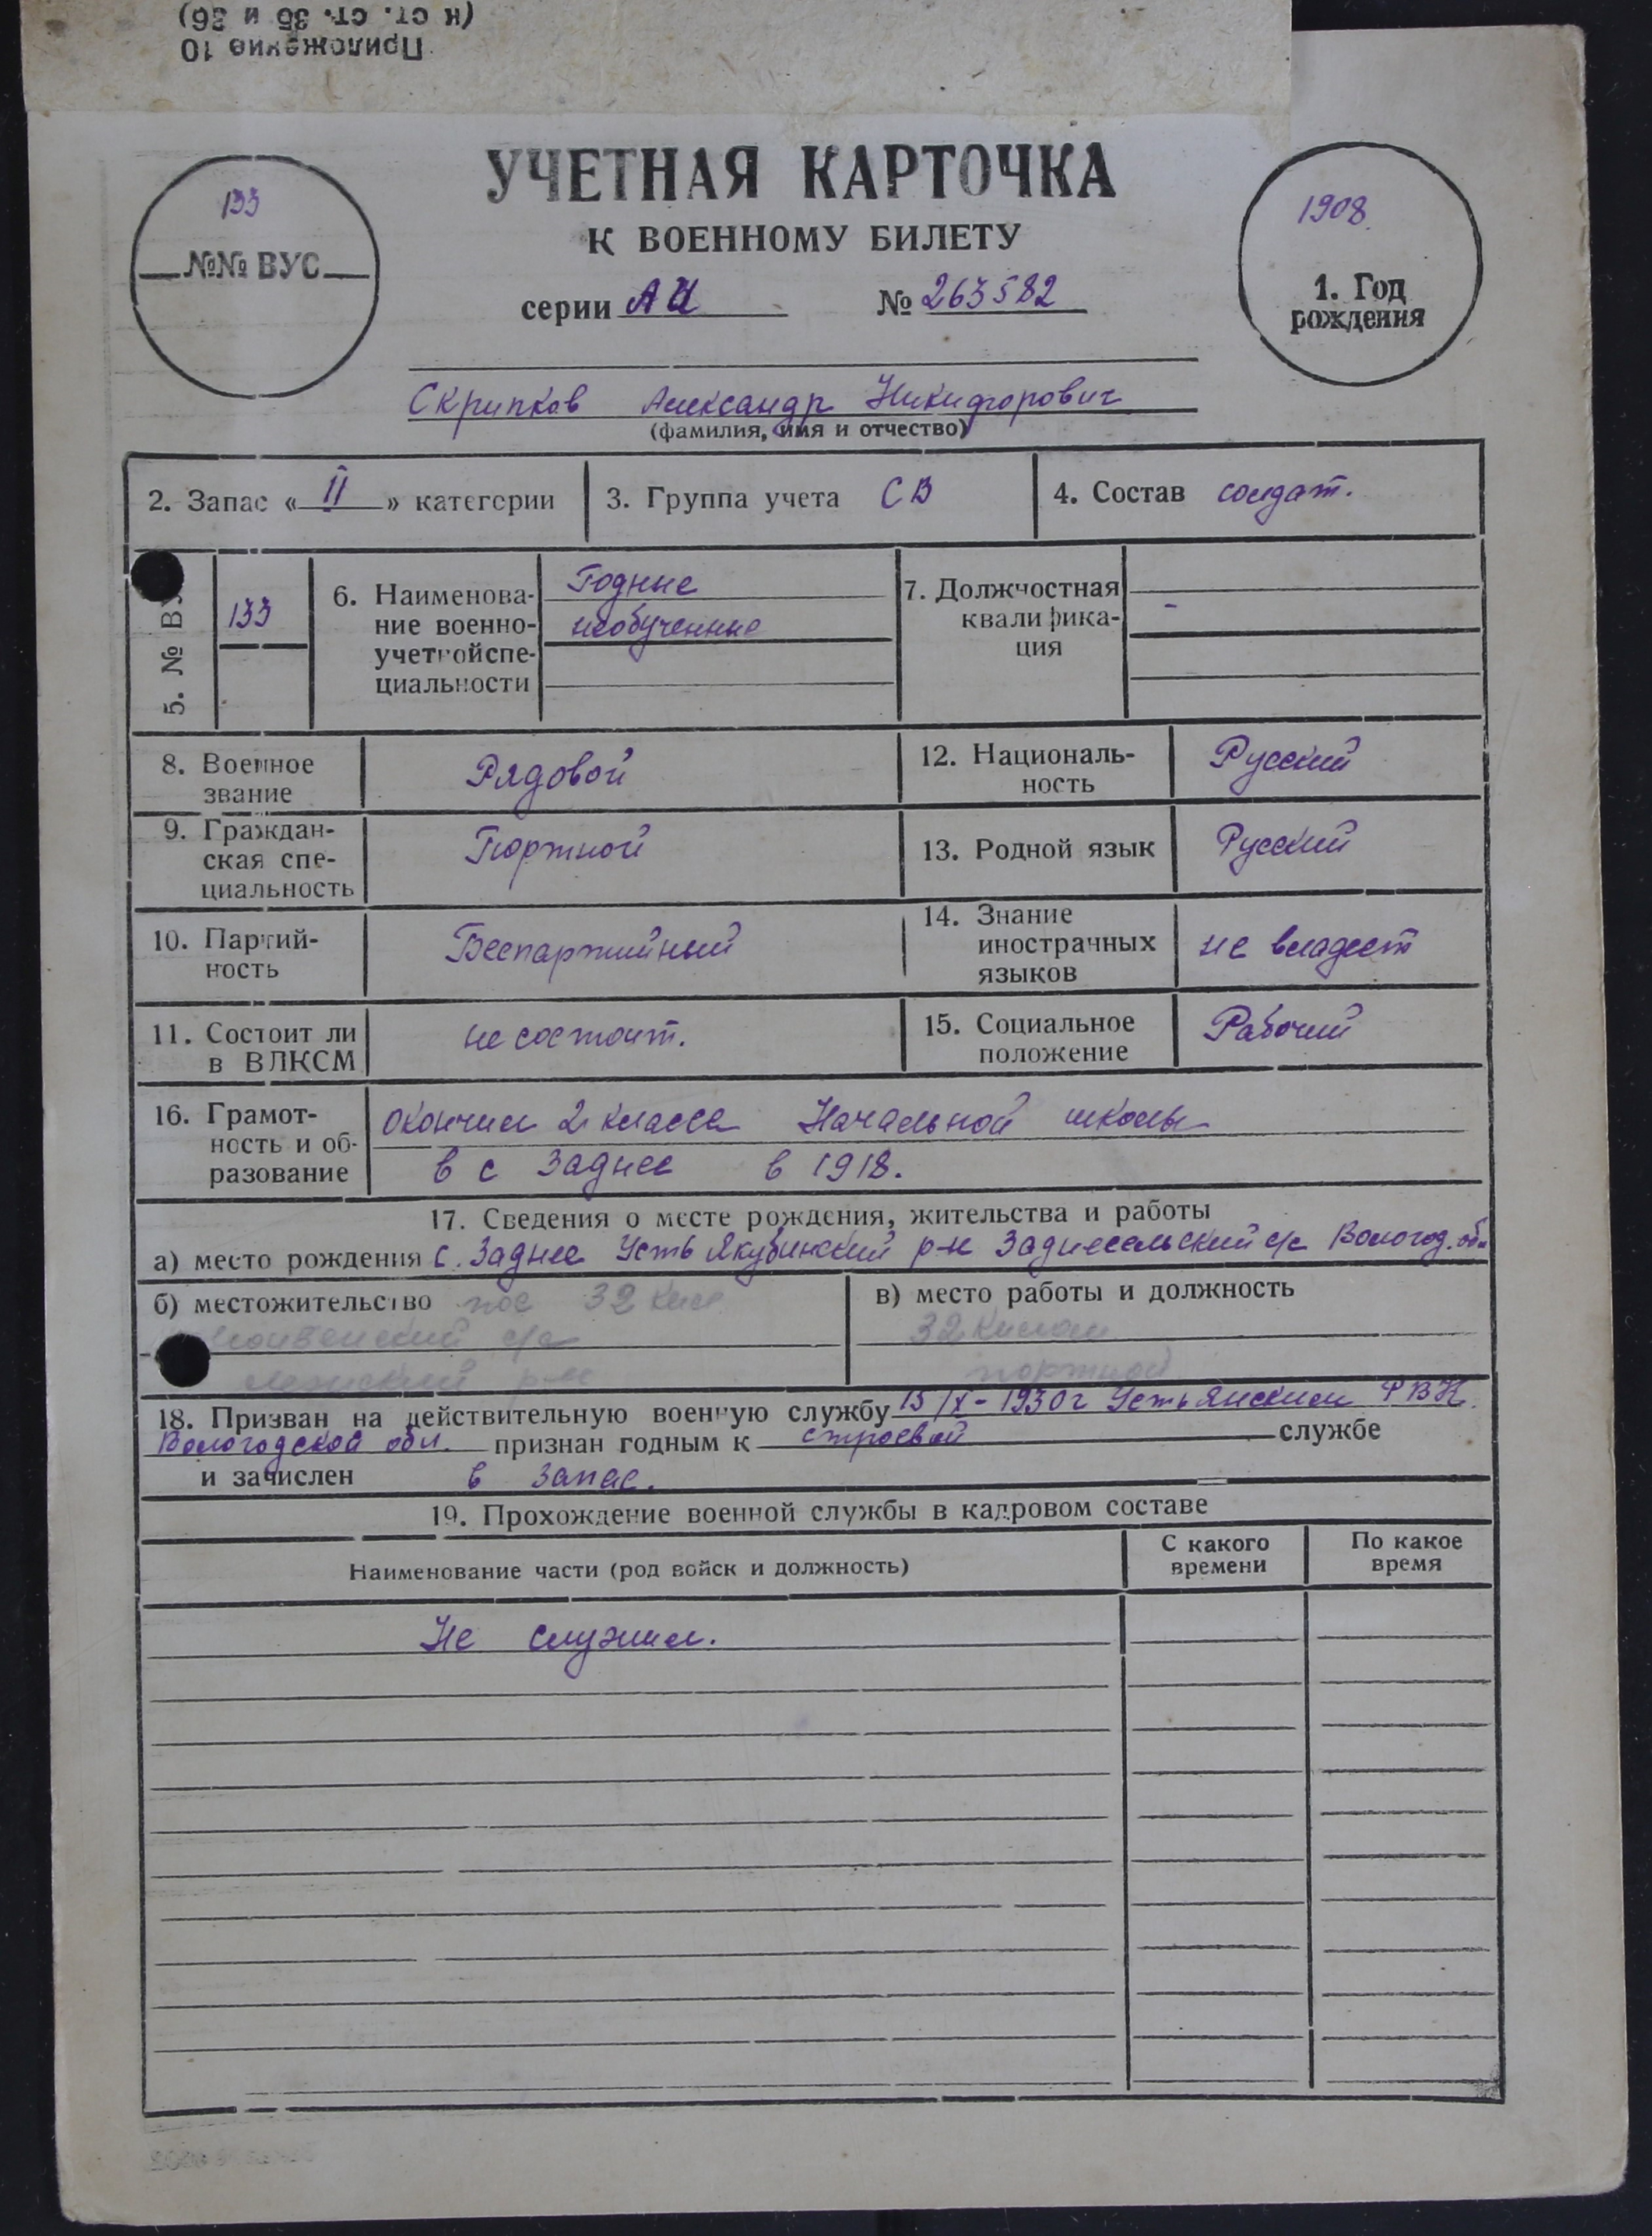 (к ст. ст. 35 и 36)
Приложение 10
УЧЕТНАЯ КАРТОЧКА
К ВОЕННОМУ БИЛЕТУ
133
№№ ВУС
серии АИ № 263582
1908
1. Год
рождения
Скрипков Александр Никифорович
(фамилия, имя и отчество)
2. Запас « II » категории
3. Группа учета СВ
4. Состав солдат.
5. № ВУ
133
6. Наименова-
ние военно-
учетной спе-
циальности
Годные
необученные
7. Должностная
квалифика-
ция
-
8. Военное
звание
Рядовой
12. Националь-
ность
Русский
9. Граждан-
ская спе-
циальность
Портной
13. Родной язык
Русский
10. Партий-
ность
Беспартийный
14. Знание
иностранных
языков
не владеет
11. Состоит ли
в ВЛКСМ
не состоит.
15. Социальное
положение
Рабочий
16. Грамот-
ность и об-
разование
окончил 2 класса Начальной школы
в с Заднее в 1918.
17. Сведения о месте рождения, жительства и работы
а) место рождения с. Заднее Усть Якубинский р-н Заднесельский с/с Вологод. обл
б) местожительство пос 32 
с/с
р-н
в) место работы и должность
32
портной
18. Призван на действительную военную службу 15/X-1930г Устьянским РВК.
Вологодской обл. признан годным к строевой службе
и зачислен в запас.
19. Прохождение военной службы в кадровом составе
Наименование части (род войск и должность)
С какого
времени
По какое
время
Не служил.